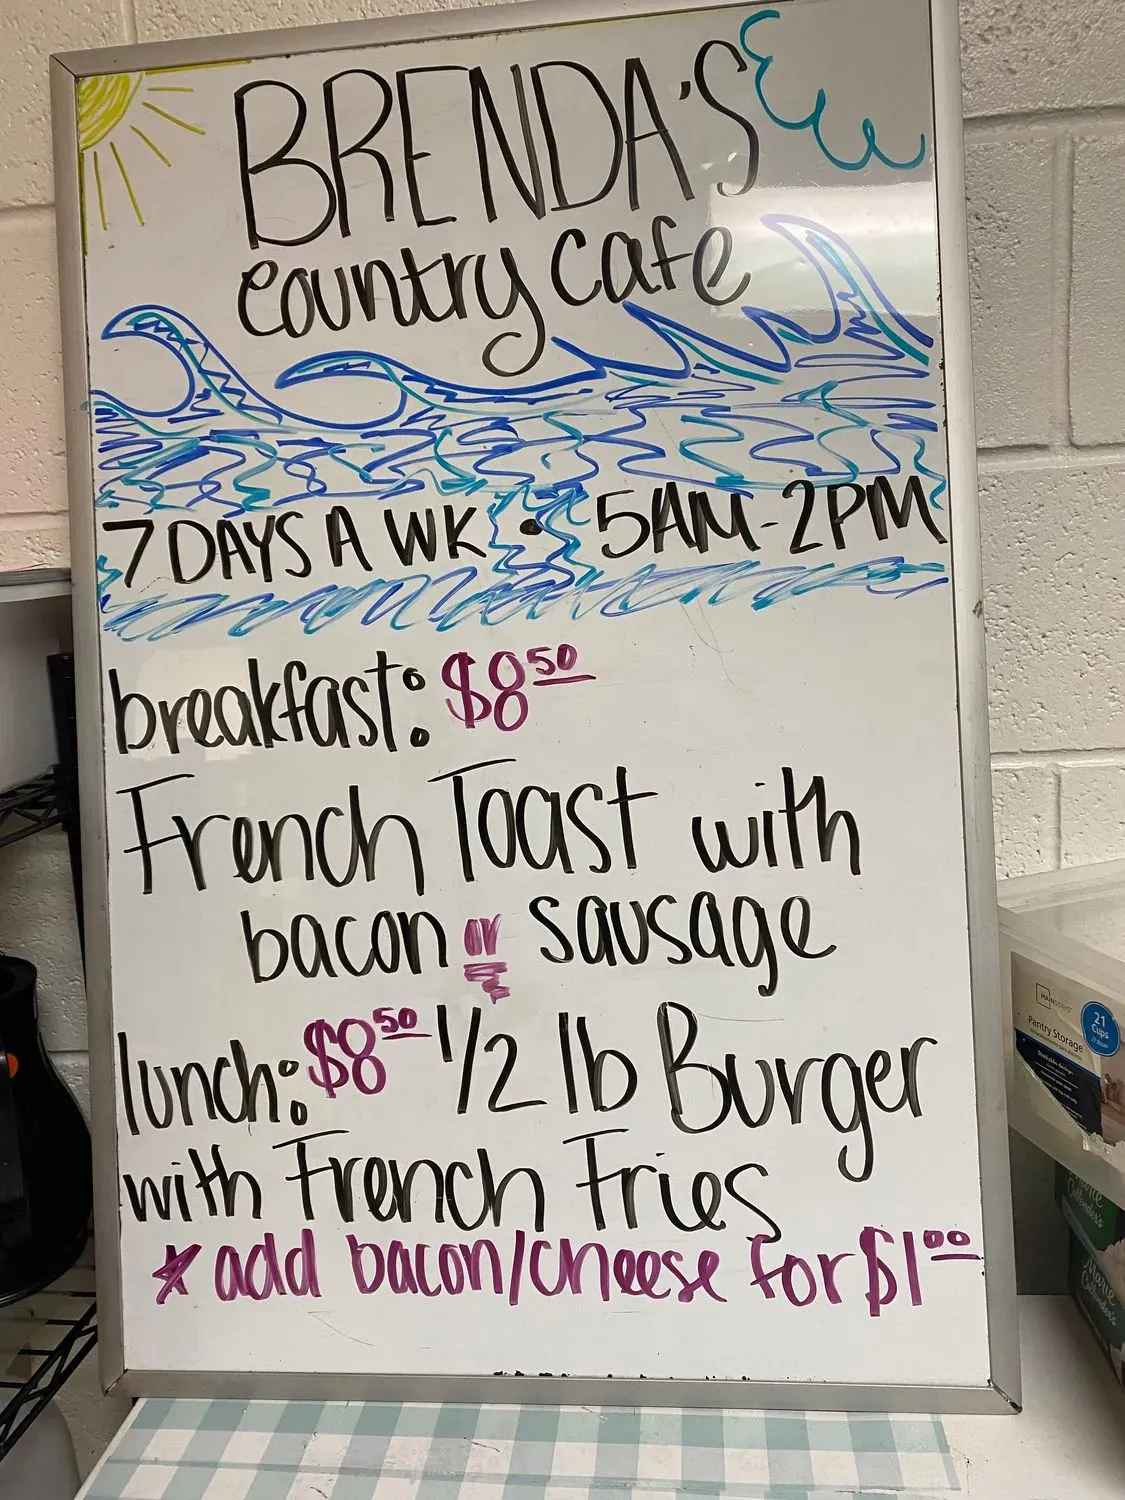 BRENDA'S
country cafe
7 DAYS A WK • 5AM-2PM
breakfast: $8.50
French Toast with
bacon or sausage
lunch: $8.50 1/2 lb Burger
with French Fries
* add bacon/cheese for $1.00
MAINSTAYS
Pantry Storage
21
Cups
Marie
Callender's
Marie
Callender's